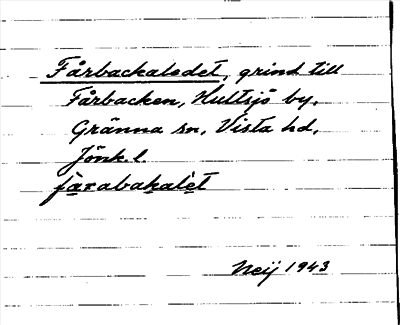 Fårbackaledet, grind till
Fårbacken, Hultsjö by,
Gränna sn, Vista hd,
Jönk. l.
fårabakalet
Neij 1943